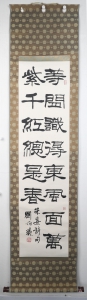 等閒識得東風面萬
紫千紅總是春
朱熹詩句